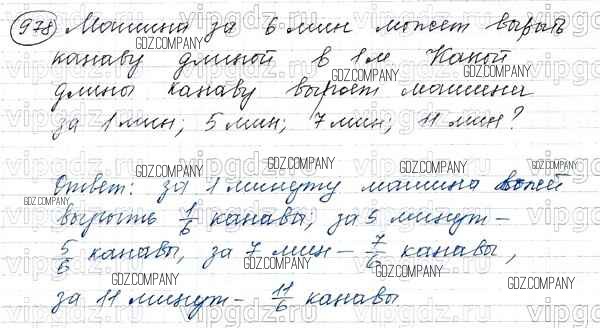 978 Машина за 6 мин может вырыть
канаву длиной в 1 м Какой
длины канаву выроет машина
за 1 мин; 5 мин; 7 мин; 11 мин?
Ответ: за 1 минуту машина
вырыть 1/6 канавы; за 5 минут -
5/6 канавы, за 7 мин - 7/6 канавы,
за 11 минут - 11/6 канавы